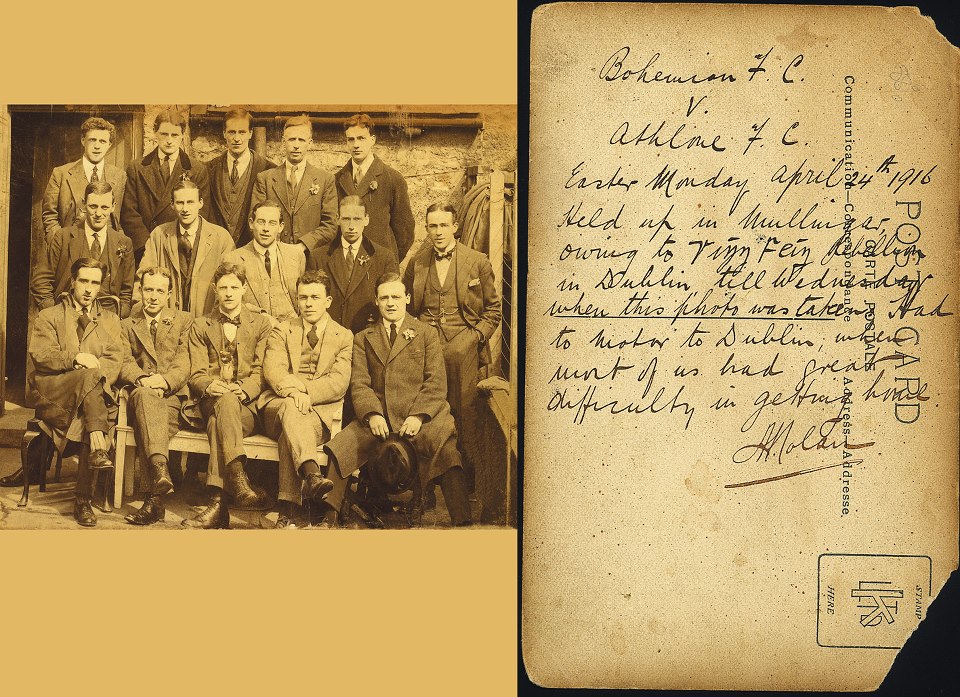 Bohemian F. C.
V.
Athlone F. C.
Easter Monday April 24th 1916
Held up in Mullingar,
owing to Sinn Fein Rebellion
in Dublin, till Wednesday
when this photo was taken. Had
to motor to Dublin, when
most of us had great
difficulty in getting home.
Nolan
POST CARD
CARTE POSTALE
Communication—Correspondance
Address—Addresse.
STAMP
HERE